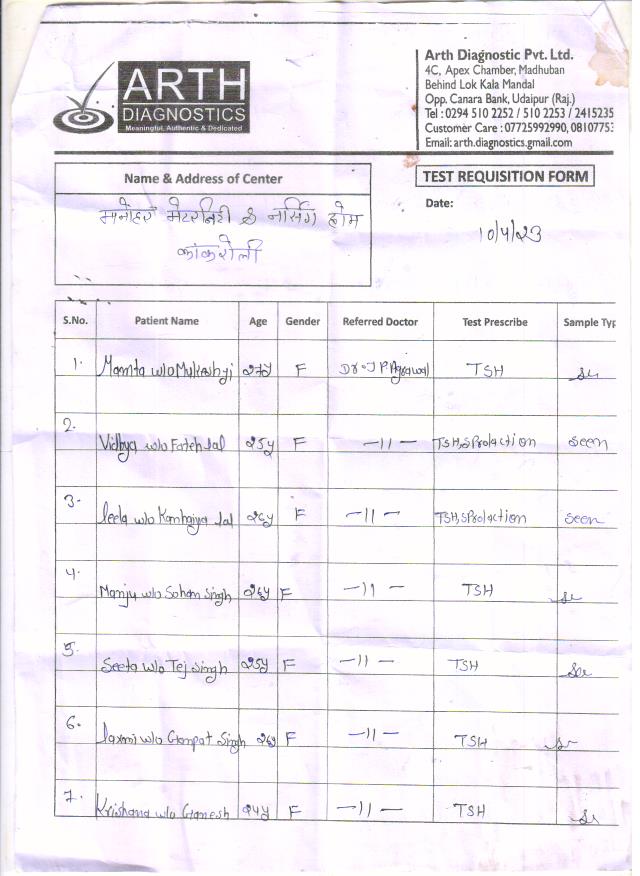 ARTH
DIAGNOSTICS
Meaningful, Authentic & Dedicated
Arth Diagnostic Pvt. Ltd.
4C, Apex Chamber, Madhuban
Behind Lok Kala Mandal
Opp. Canara Bank, Udaipur (Raj.)
Tel : 0294 510 2252 / 510 2253 / 2415235
Customer Care : 07725992990, 0810775
Email: arth.diagnostics.gmail.com
Name & Address of Center
मनोहर मेटरनिटी & नर्सिंग होम
कांकरोली
TEST REQUISITION FORM
Date:
10/4/23
S.No. Patient Name Age Gender Referred Doctor Test Prescribe Sample Typ
1. Mamta w/o Mukeshji 27y F Dr. J P Agrawal TSH
2. Vidhya w/o Fateh lal 25y F -11- TSH, S Prolaction seen
3. leela w/o Kanhaiya lal 26y F -11- TSH, S Prolaction seen
4. Manju w/o Sohan Singh 26y F -11- TSH
5. Seeta w/o Tej Singh 25y F -11- TSH
6. laxmi w/o Ganpat Singh 26y F -11- TSH
7. Krishana w/o Ganesh 24y F -11- TSH